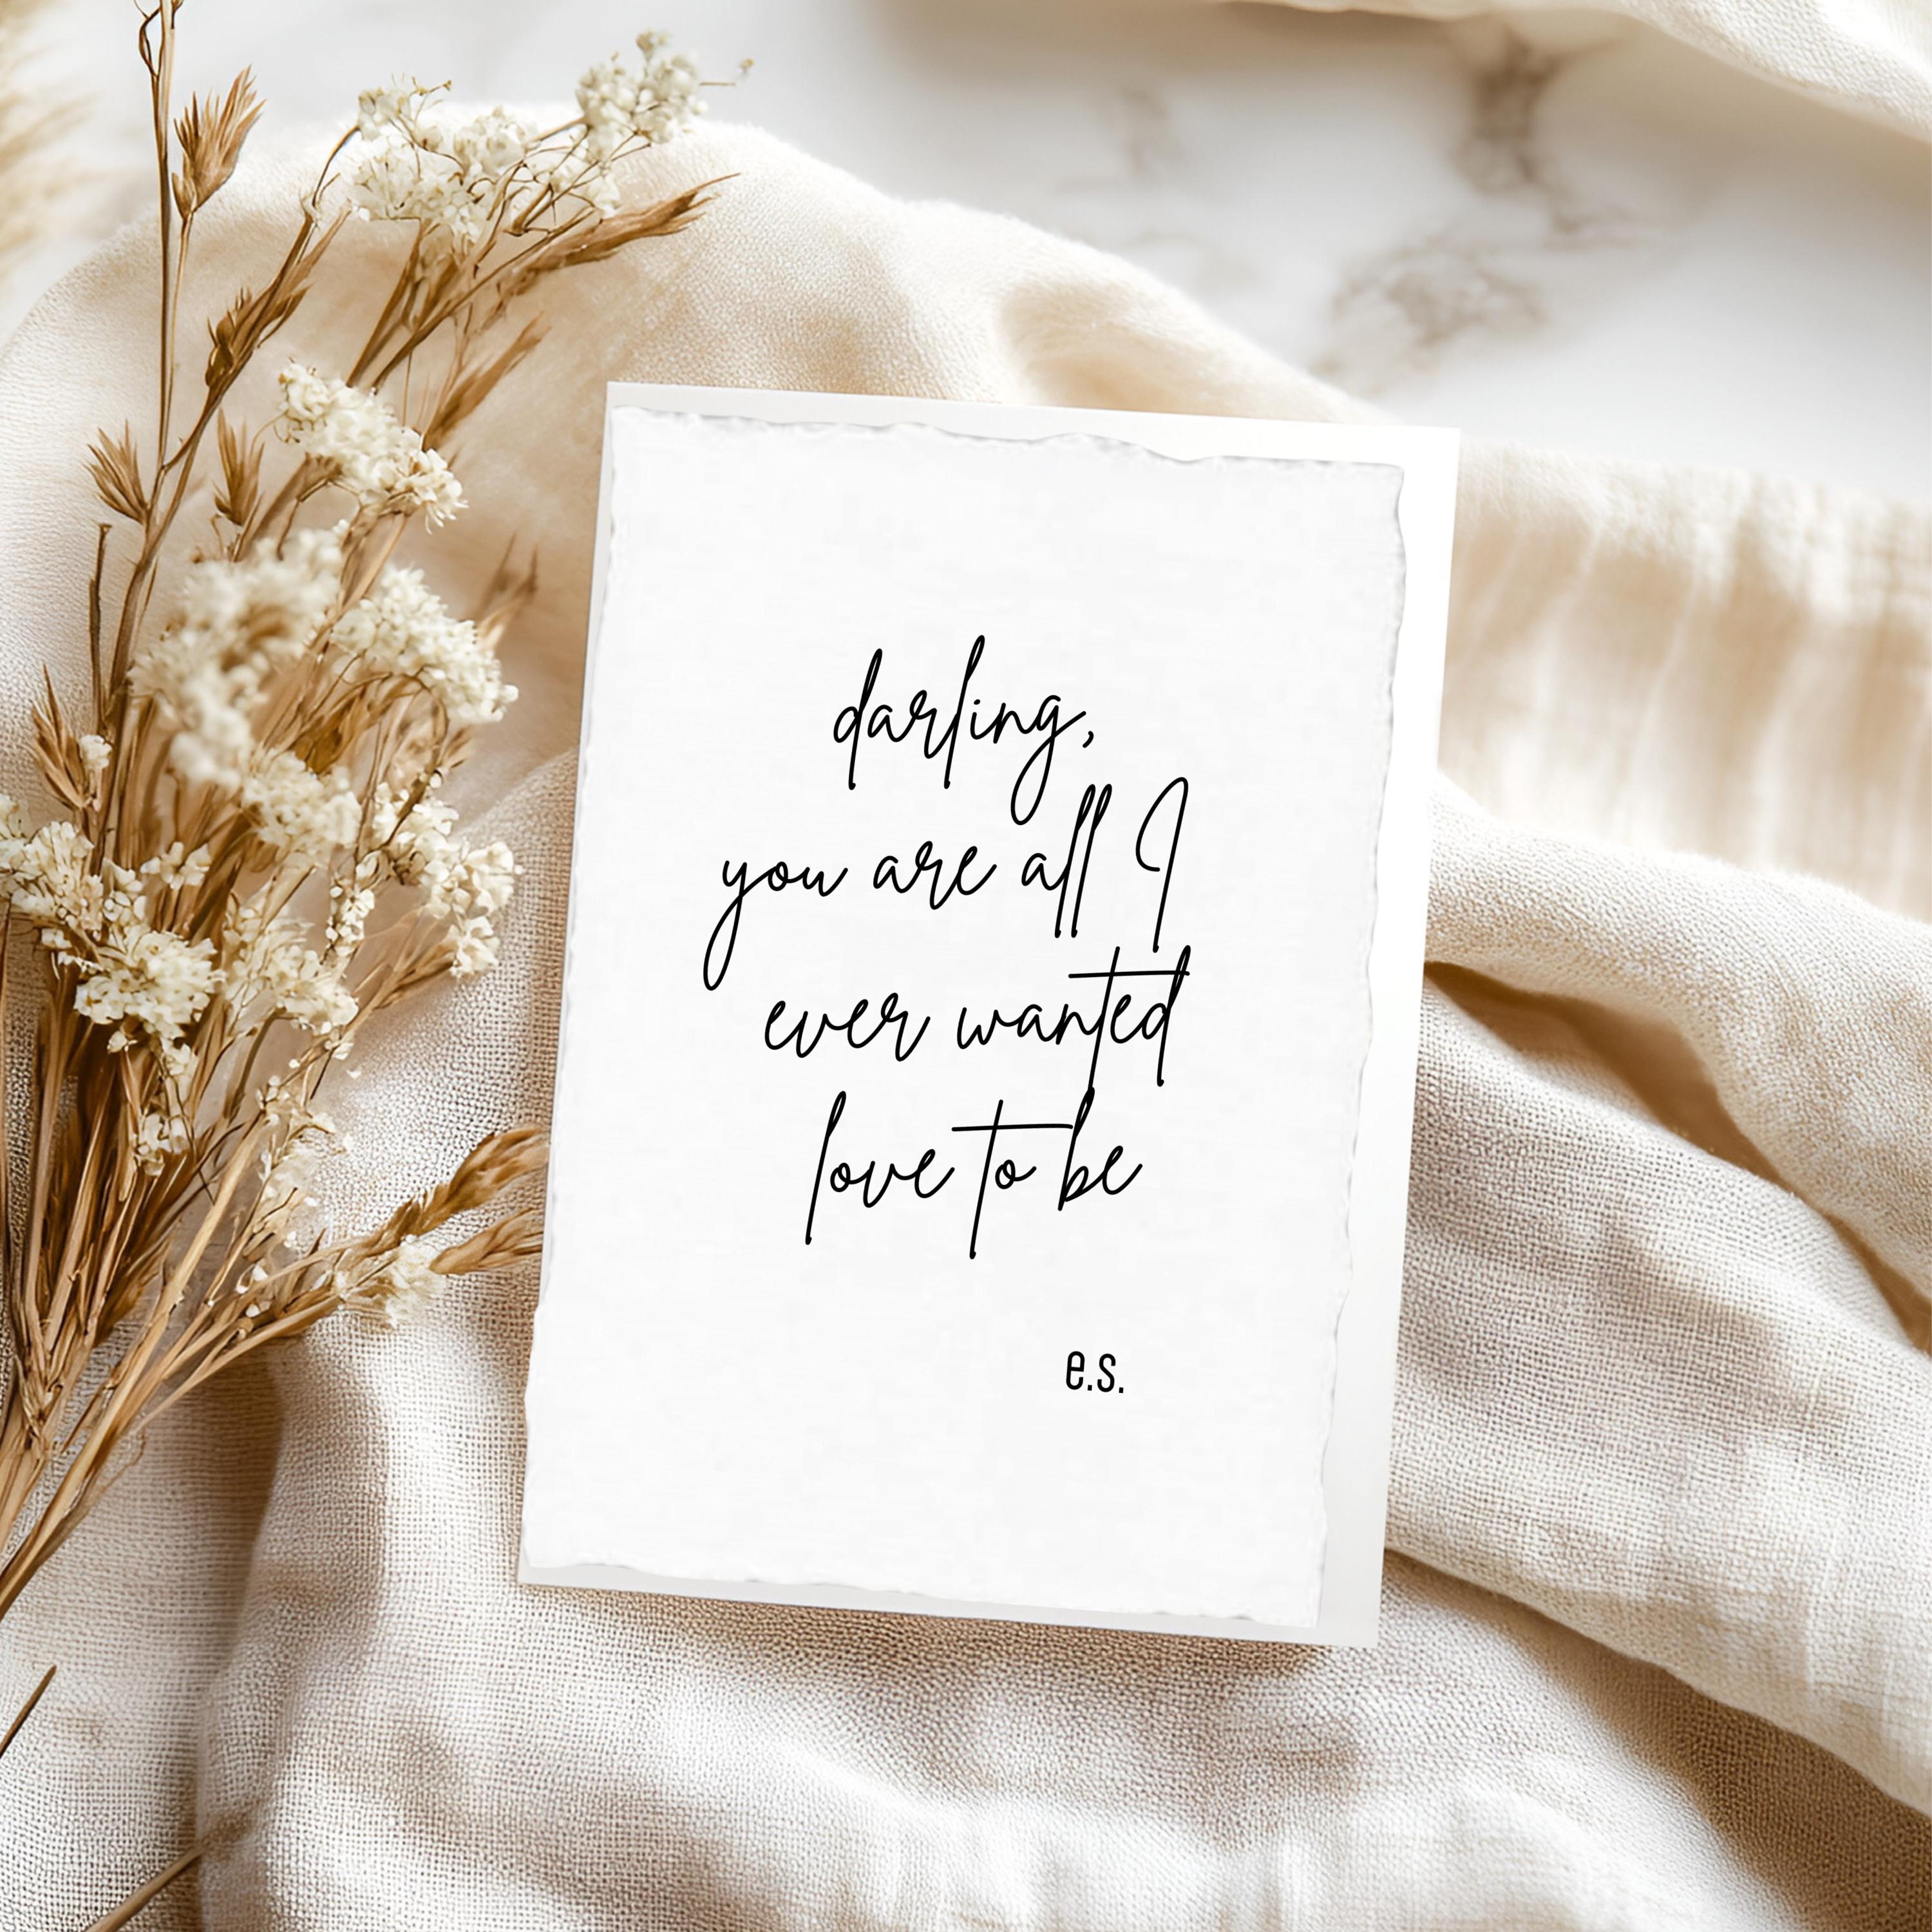 darling,
you are all I
ever wanted
love to be
e.s.